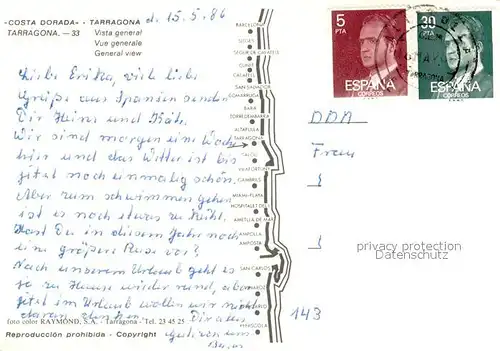 -COSTA DORADA- - TARRAGONA
TARRAGONA. — 33
Vista general
Vue generale
General view
d. 15.5.86
5
PTA
ESPAÑA
CORREOS
30
PTA
ESPAÑA
CORREOS
Liebe Erika, viele liebe
Grüße aus Spanien senden
Dir Heinz und Käth.
Wir sind morgen eine Woche
hier und das Wetter ist bis
jetzt noch einmalig schön.
Aber zum schwimmen gehen
ist es noch etwas zu kühl.
Hast Du in diesem Jahr noch
eine größere Reise vor?
Nach unserem Urlaub geht es
ja zu Hause wieder rund, aber
jetzt im Urlaub wollen wir nicht
daran denken. Dir alles
Gute von uns
Beiden
BARCELONA
SITGES
CALAFELL
SAN SALVADOR
COMARRUGA
BARA
TORREDEMBARRA
ALTAFULLA
TARRAGONA
SALOU
CAMBRILS
MIAMI-PLAYA
HOSPITALET
AMETLLA DE MAR
AMPOLLA
AMPOSTA
SAN CARLOS
PEÑISCOLA
DDR
Frau
privacy protection
Datenschutz
143
foto color RAYMOND, S.A. - Tarragona - Tel. 23 45 25
Reproducción prohibida - Copyright